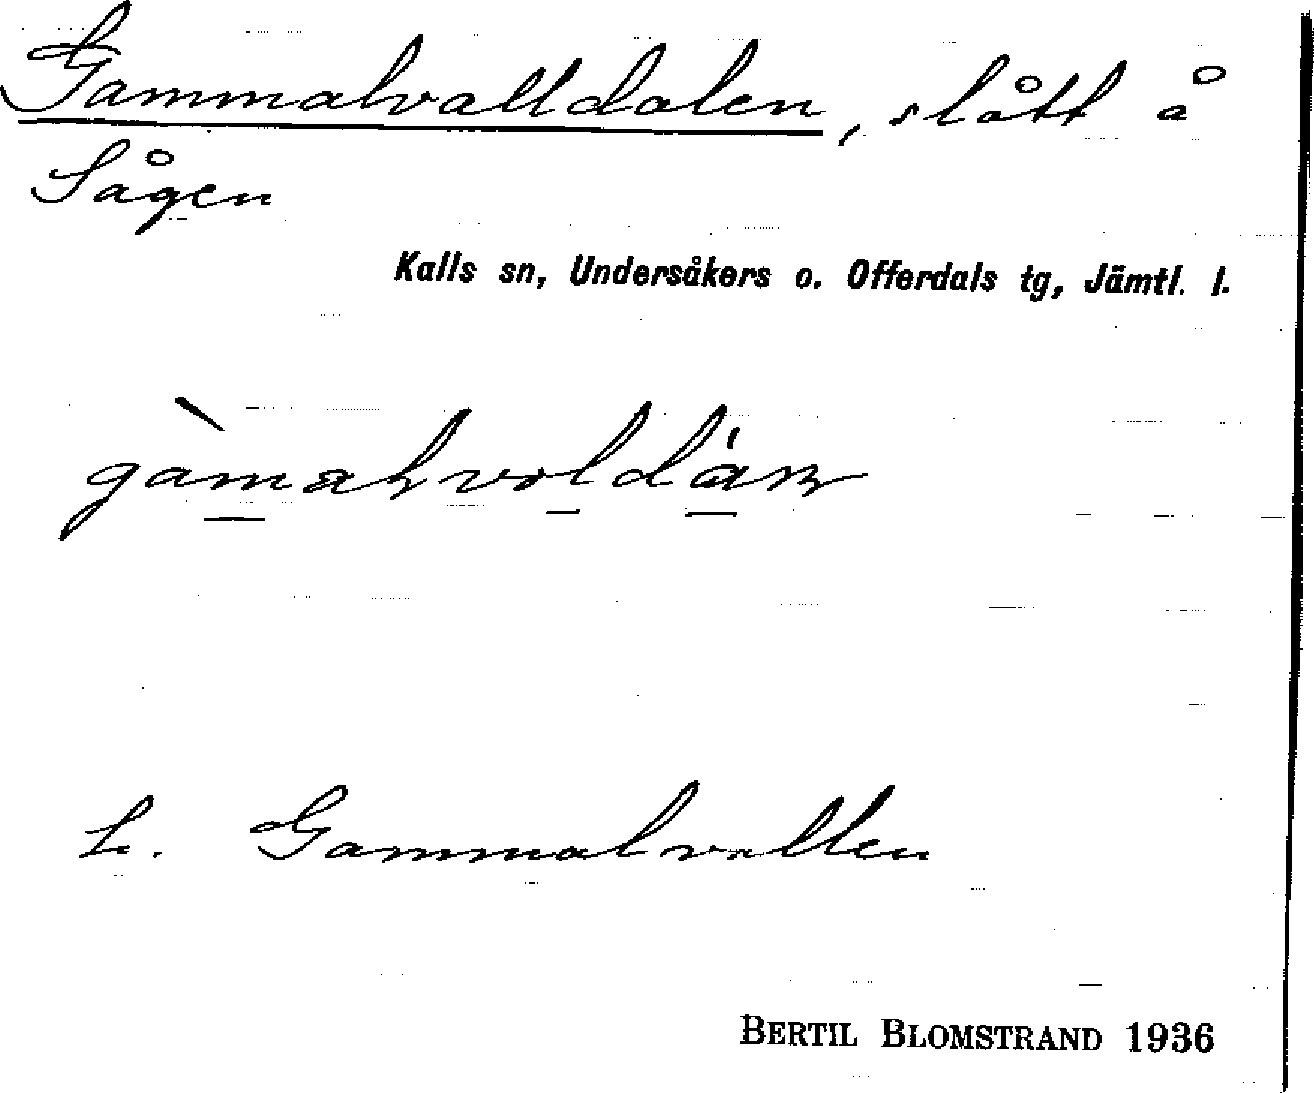 Gammalvalldalen, slått å
Sågen
Kalls sn, Undersåkers o. Offerdals tg, Jämtl. l.
L. Gammalvallen
BERTIL BLOMSTRAND 1936